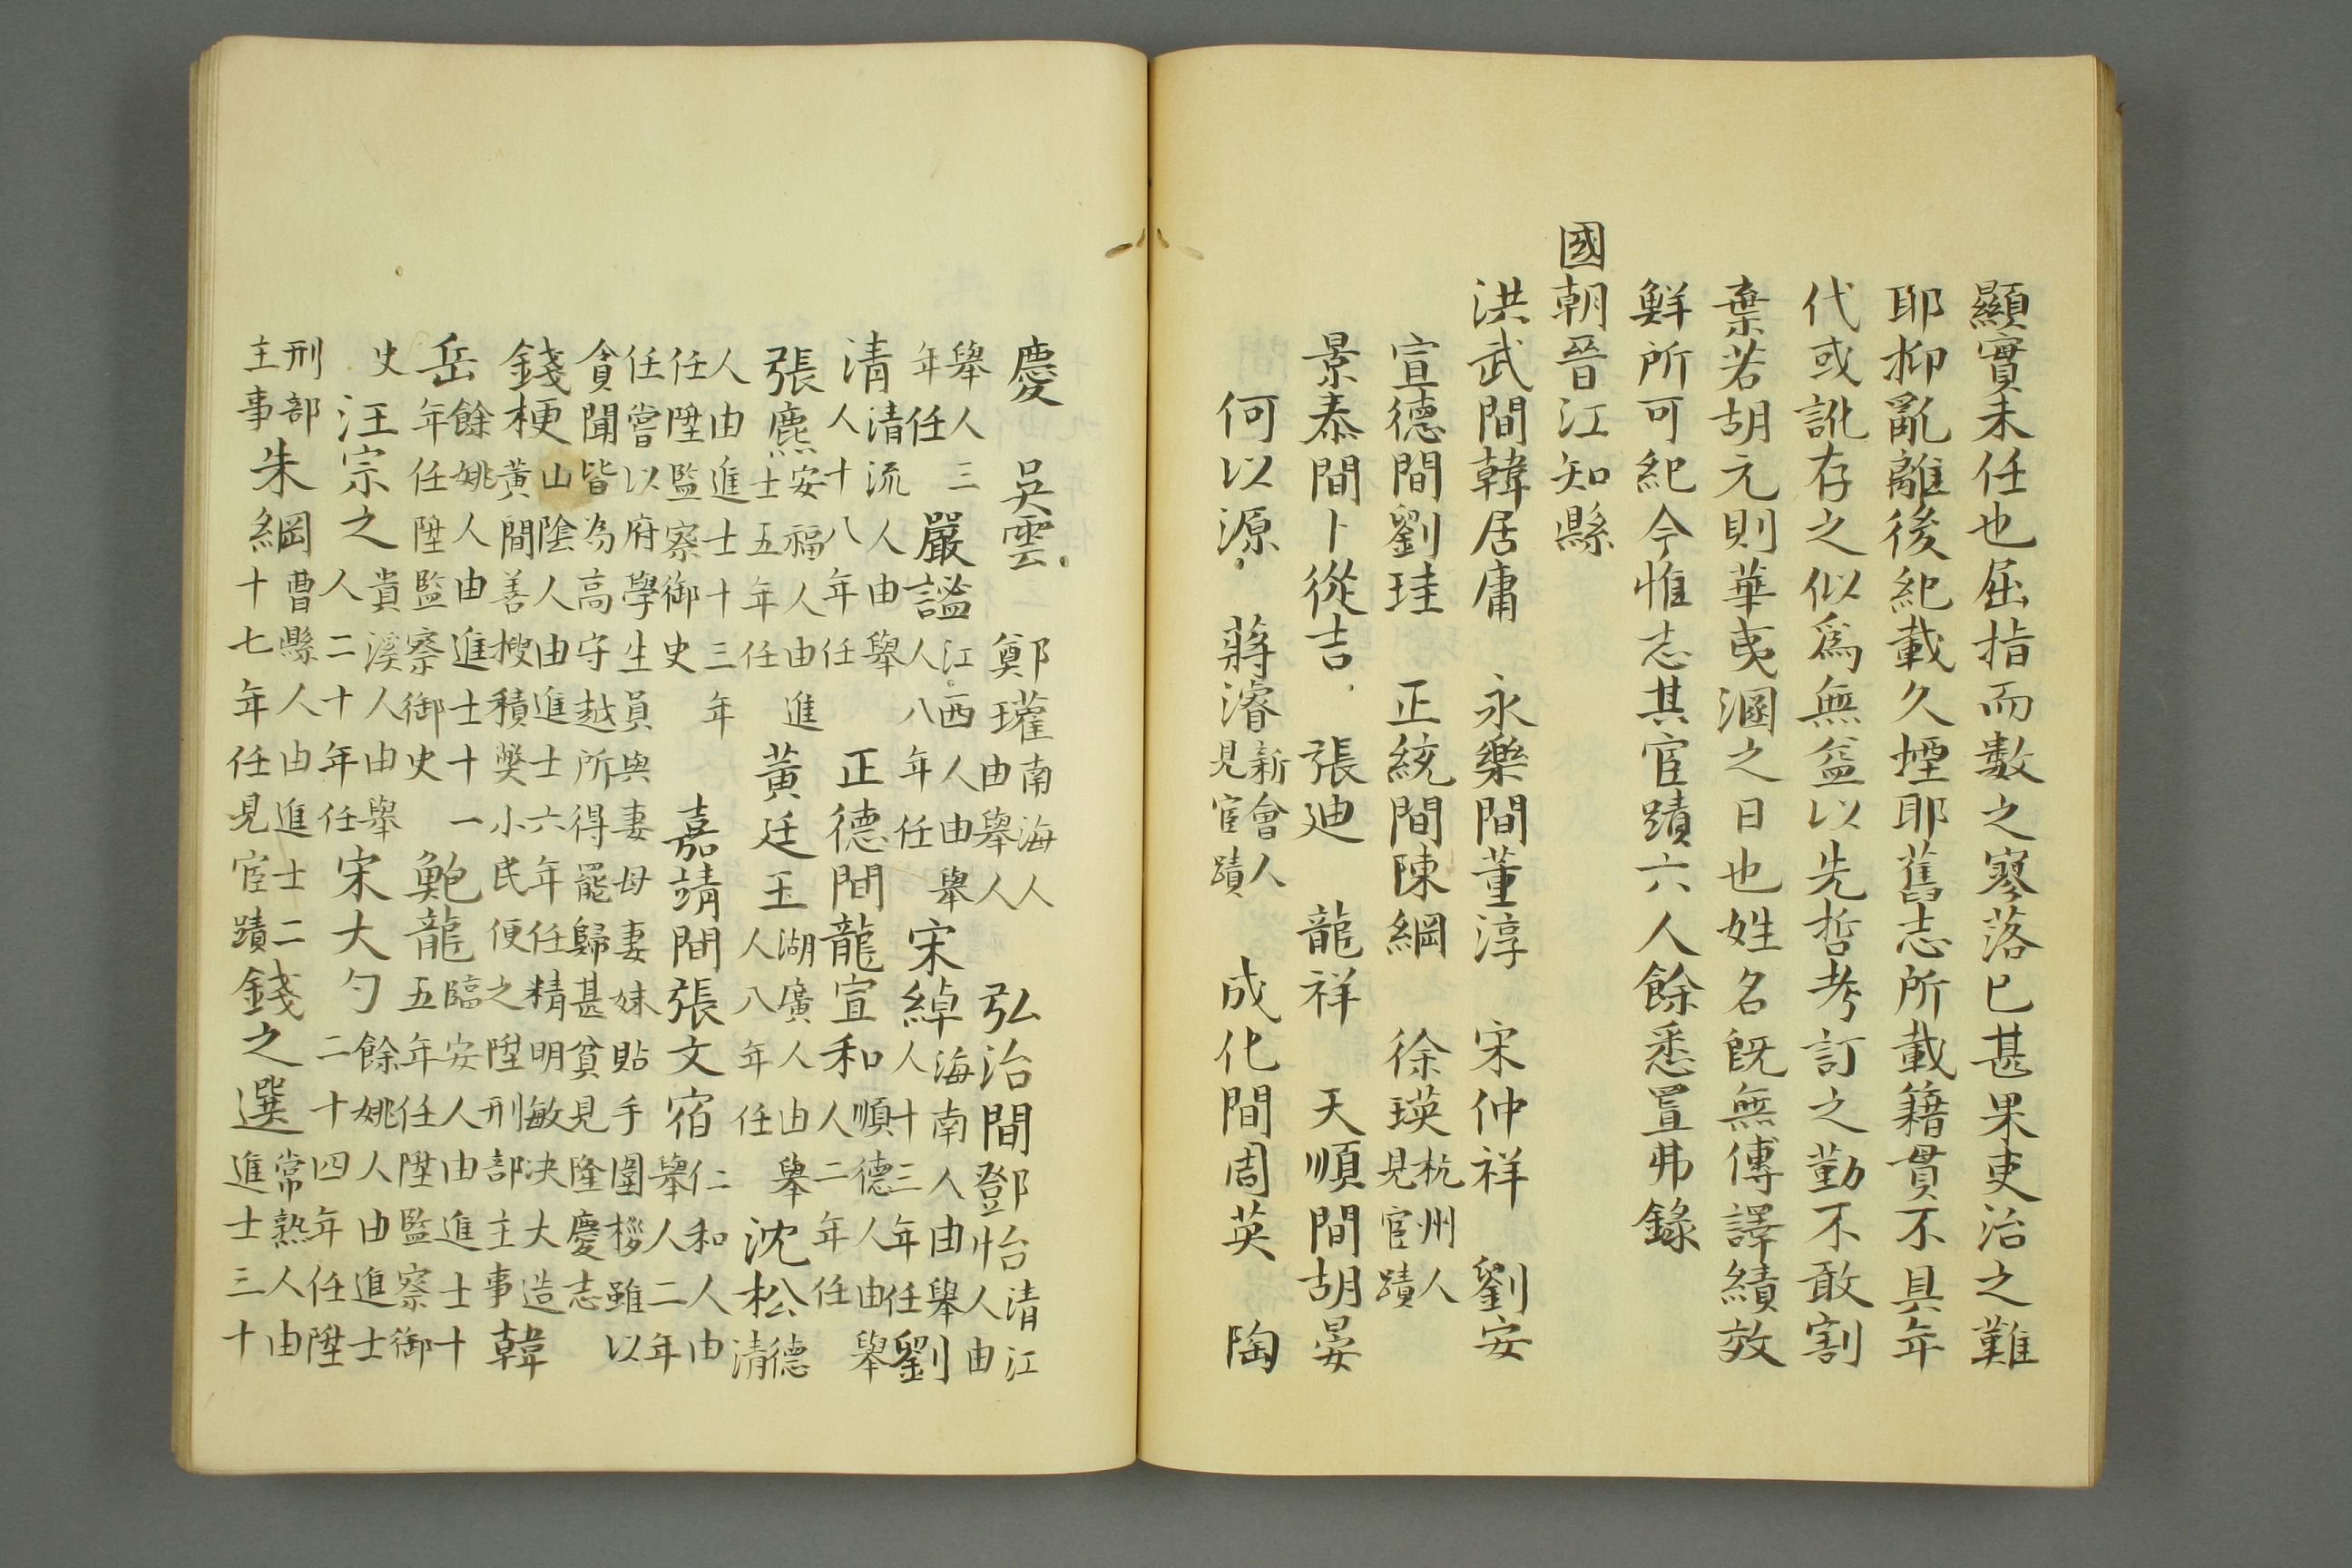 顯實未任也屈指而數之寥落已甚果吏治之難
耶抑亂離後紀載久堙耶舊志所載籍貫不具年
代或訛存之似爲無益以先哲考訂之勤不敢割
棄若胡元則華夷溷之日也姓名旣無傅譯績效
鮮所可紀今惟志其宦蹟六人餘悉置弗錄
國朝晉江知縣
洪武間韓居庸 永樂間董淳 宋仲祥 劉安
宣德間劉珪 正統間陳綱 徐瑛杭州人見宦蹟
景泰間卜從吉 張迪 龍祥 天順間胡晏
何以源 蔣濬新會人見宦蹟 成化間周英 陶
慶 吳雲 鄭瓘南海人由舉人 弘治間鄧怡清江人由
舉人三年任 嚴謐江西人由舉人八年任 宋綽海南人由舉人十三年任 劉
清清流人由舉人十八年任 正德間龍宣和順德人由舉人二年任
張麃安福人由進士五年任 黃廷玉湖廣人由舉人八年任 沈松德清
人由進士十三年任陞監察御史 嘉靖間張文宿仁和人由舉人二年
任嘗以府學生員與妻母妻妹貼手圍桚雖以貪聞皆為高守越所得罷歸甚貧見隆慶志
錢梗山陰人由進士六年任精明敏决大造黃間善搜積獘小民便之陞刑部主事 韓
岳餘姚人由進士十一年任陞監察御史 鮑龍臨安人由進士十五年任陞監察御
史 汪宗之貴溪人由舉人二十年任 宋大勺餘姚人由進士二十四年任陞
刑部主事 朱綱曹縣人由進士二十七年任見宦蹟 錢之選常熟人由進士三十